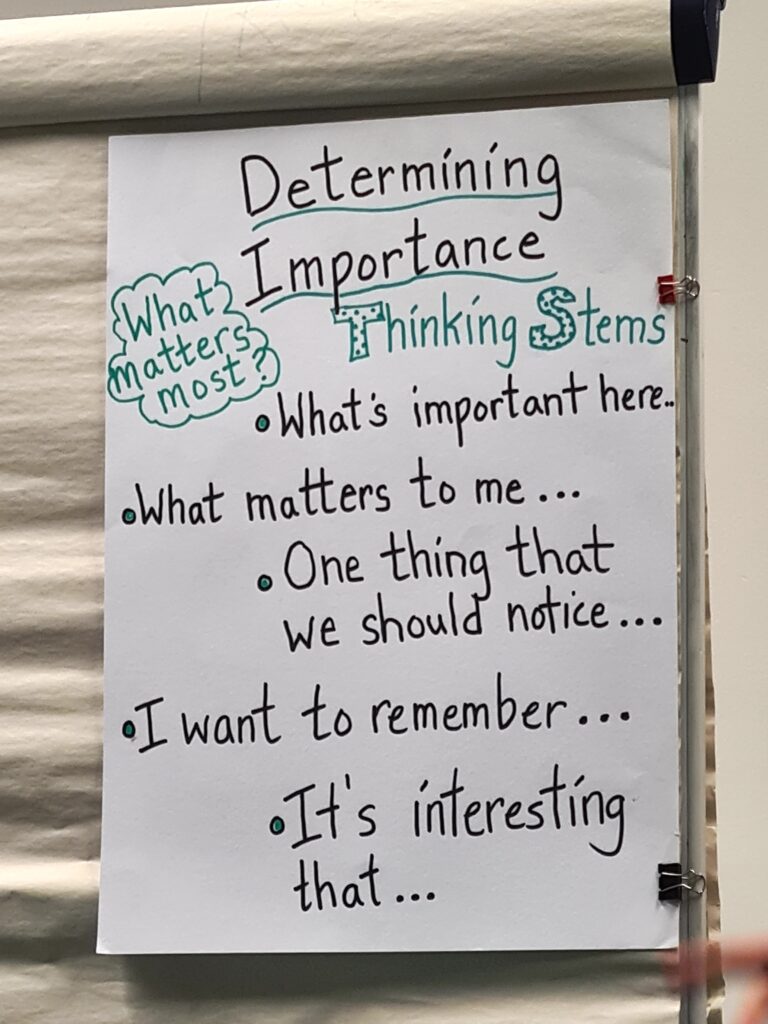 Determining
Importance
What
matters
most?
Thinking Stems
•What's important here..
•What matters to me...
•One thing that
we should notice...
•I want to remember...
•It's interesting
that...